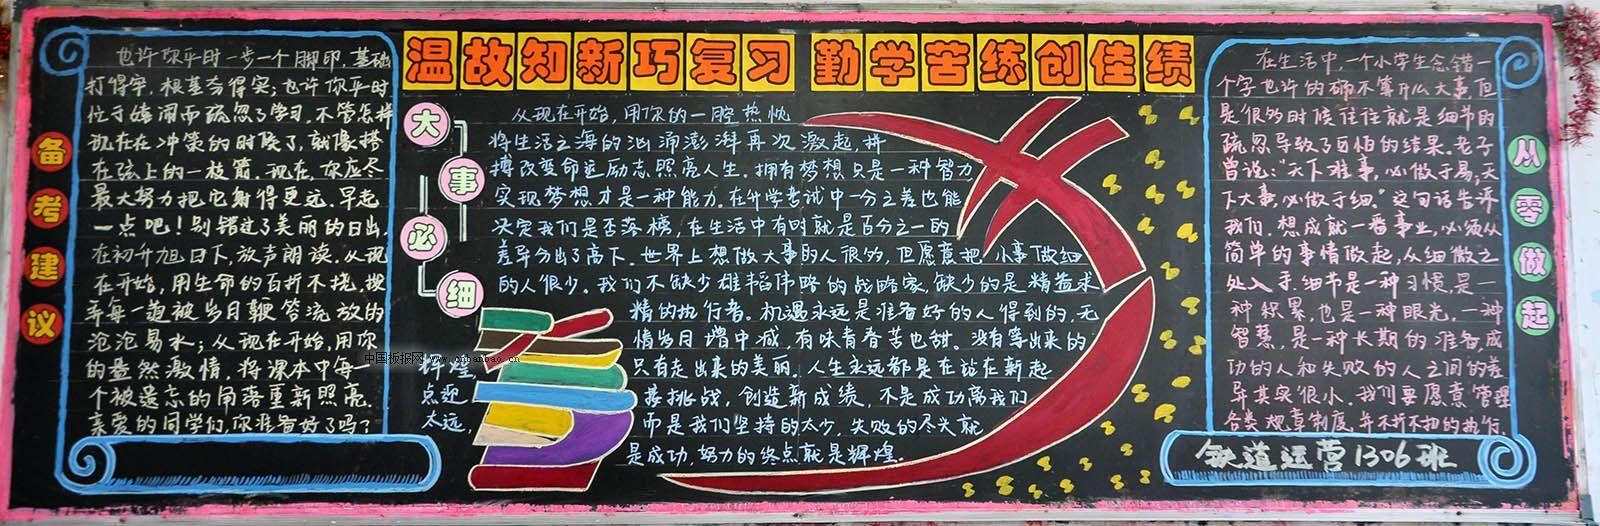 温故知新巧复习 勤学苦练创佳绩
备考建议
也许你平时一步一个脚印,基础
打得牢,根基夯得实;也许你平时
位于嬉闹而疏忽了学习.不管怎样
现在在冲策的时候了,就像搭
在弦上的一枝箭.现在,你应尽
最大努力把它射得更远.早起
一点吧!别错过了美丽的日出.
在初升旭日下,放声朗读.从现
在开始,用生命的百折不挠,搜
寻每一道被岁月鞭笞流放的
沧沧易水;从现在开始,用你
的盎然激情,将课本中每一
个被遗忘的角落重新照亮.
亲爱的同学们,你准备好了吗?
大事必细
从现在开始,用你的一腔热忱
将生活之海的汹涌澎湃再次激起,拼
搏改变命运励志照亮人生.拥有梦想只是一种智力
实现梦想才是一种能力.在升学考试中一分之差也能
决定我们是否落榜,在生活中有时就是百分之一的
差异分出了高下.世界上想做大事的人很多,但愿意把小事做细
的人很少.我们不缺少雄韬伟略的战略家,缺少的是精益求
精的执行者.机遇永远是准备好的人得到的,无
情岁月增中减,有味青春苦也甜.没有等出来的
辉煌,只有走出来的美丽.人生永远都是在站在新起
点迎接挑战,创造新成绩,不是成功离我们
太远,而是我们坚持的太少,失败的尽头就
是成功,努力的终点就是辉煌.
中国板报网 www.znbanbao.cn
从零做起
在生活中,一个小学生念错一
个字也许的确不算什么大事,但
是很多时候往往就是细节的
疏忽导致了可怕的结果.老子
曾说:"天下难事,必做于易;天
下大事,必做于细."这句话告诉
我们.想成就一番事业,必须从
简单的事情做起,从细微之
处入手.细节是一种习惯,是一
种积累,也是一种眼光,一种
智慧,是一种长期的准备,成
功的人和失败的人之间的差
异其实很小,我们要愿意管理
各类规章制度,并不折不扣的执行.
铁道运营1306班